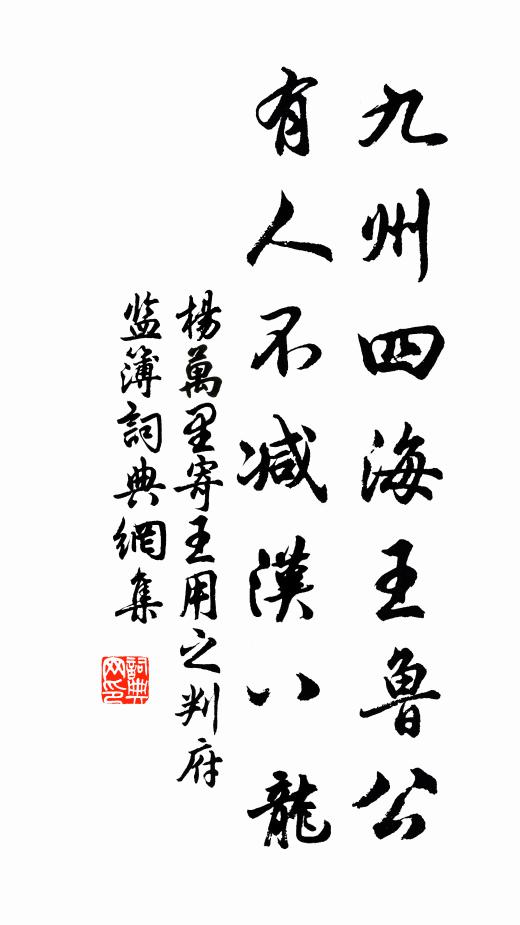 九州四海王魯公
有人不减漢八龍
楊萬里寄王用之判府
监簿詞典網集
詞典网印